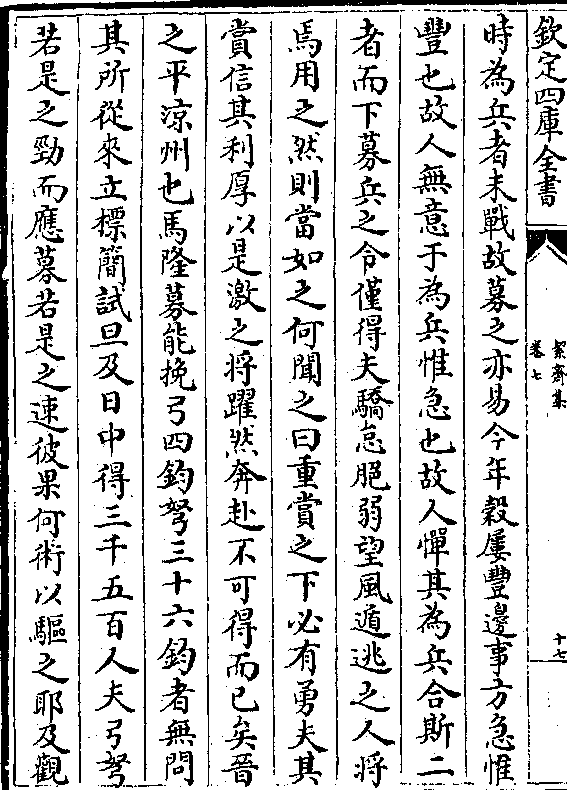 欽定四庫全書
絜齋集
卷七
十七
時為兵者未戰故募之亦易今年穀屢豐邊事方急惟
豐也故人無意于為兵惟急也故人憚其為兵合斯二
者而下募兵之令僅得夫驕怠脆弱望風遁逃之人將
焉用之然則當如之何聞之曰重賞之下必有勇夫其
賞信其利厚以是激之將躍然奔赴不可得而已矣晉
之平涼州也馬隆募能挽弓四鈞弩三十六鈞者無問
其所從來立標簡試旦及日中得三千五百人夫弓弩
若是之勁而應募若是之速彼果何術以驅之耶及觀